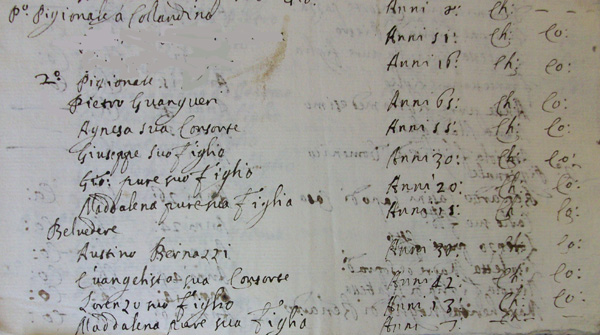 P.º Pigionale à Collandino Anni 2: Ch: —
Anni 51: Ch: Co:
Anni 16: Ch: Co:
2.º Pigionale
Pietro Guangueri Anni 65: Ch: Co:
Agnesa sua Consorte Anni 55: Ch: Co:
Giuseppe suo Figlio Anni 30: Ch: Co:
Gio: pure suo Figlio Anni 20: Ch: Co:
Maddalena pure sua Figlia Anni 15: Ch: Co:
Belvedere
Austino Bernazzi Anni 50: Ch: Co:
Evangelista sua Consorte Anni 42: Ch: Co:
Lorenzo suo Figlio Anni 13: Ch: Co:
Maddalena pure sua Figlia Anni